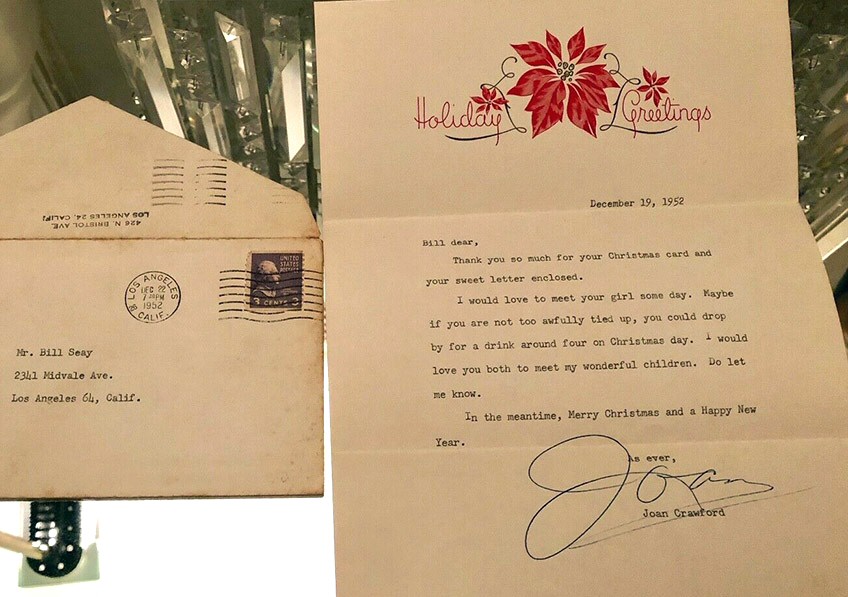 Holiday Greetings
December 19, 1952
Bill dear,
Thank you so much for your Christmas card and
your sweet letter enclosed.
I would love to meet your girl some day. Maybe
if you are not too awfully tied up, you could drop
by for a drink around four on Christmas day. I would
love you both to meet my wonderful children. Do let
me know.
In the meantime, Merry Christmas and a Happy New
Year.
As ever,
Joan
Joan Crawford
426 N. BRISTOL AVE.
LOS ANGELES 24, CALIF.
LOS ANGELES
DEC 22
PM
1952
CALIF.
UNITED
STATES
POSTAGE
3 CENTS 3
Mr. Bill Seay
2341 Midvale Ave.
Los Angeles 64, Calif.